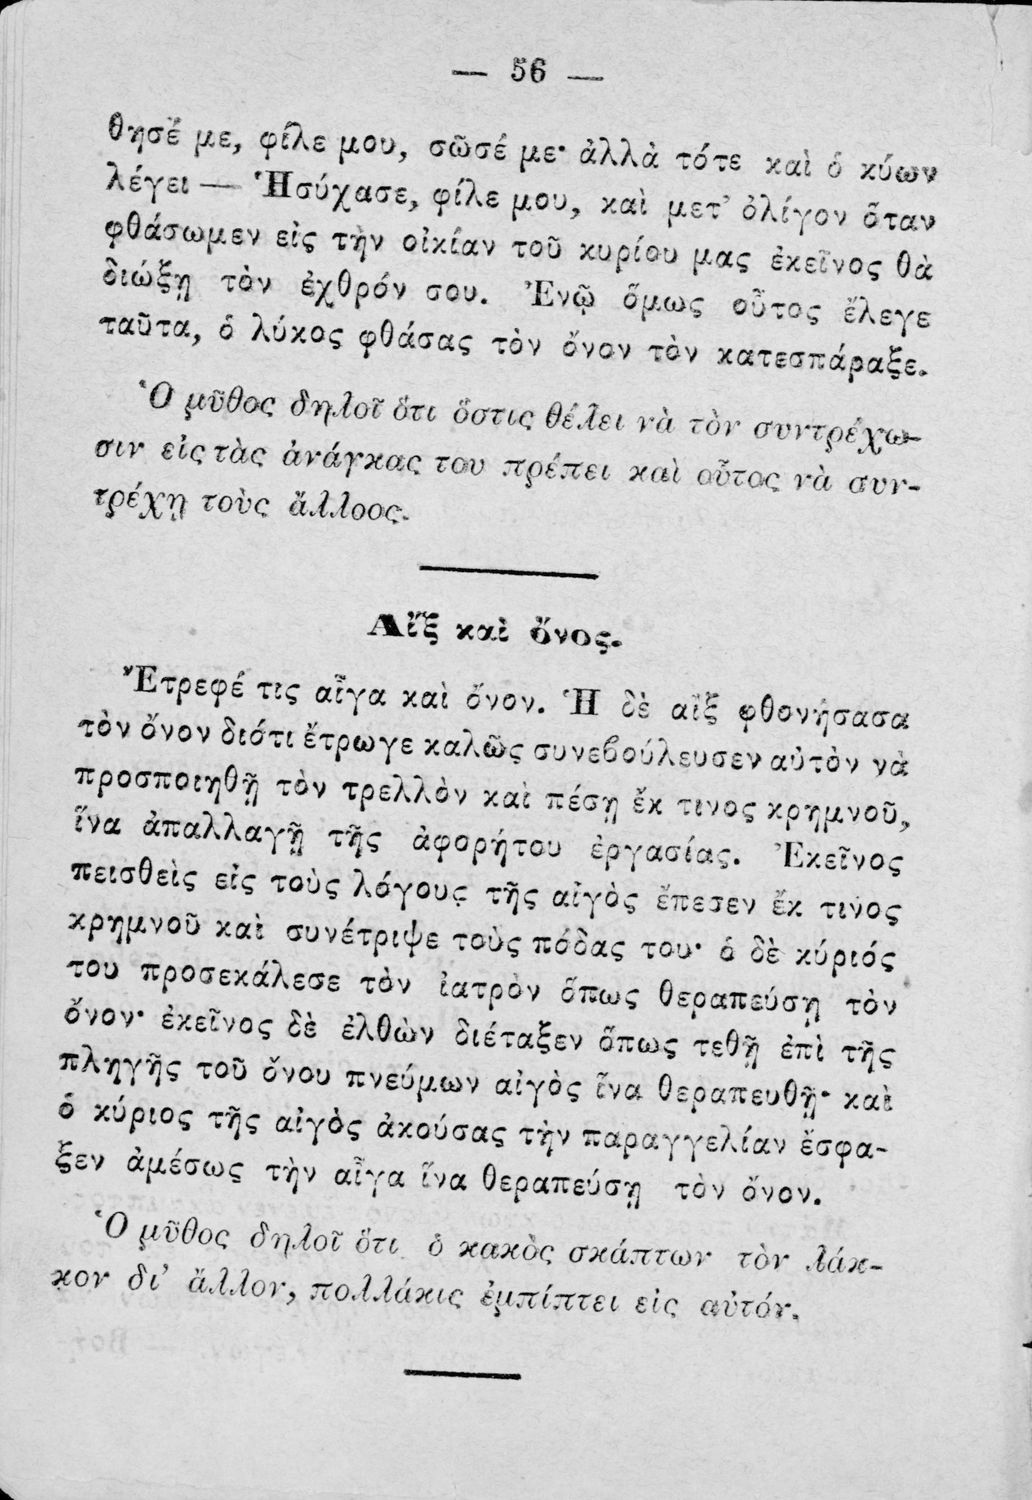 — 56 —
θησέ με, φίλε μου, σῶσέ με· ἀλλὰ τότε καὶ ὁ κύων
λέγει — Ἡσύχασε, φίλε μου, καὶ μετ' ὀλίγον ὅταν
φθάσωμεν εἰς τὴν οἰκίαν τοῦ κυρίου μας ἐκεῖνος θὰ
διώξῃ τὸν ἐχθρόν σου. Ἐνῷ ὅμως οὗτος ἔλεγε
ταῦτα, ὁ λύκος φθάσας τὸν ὄνον τὸν κατεσπάραξε.
Ὁ μῦθος δηλοῖ ὅτι ὅστις θέλει νὰ τὸν συντρέχω-
σιν εἰς τὰς ἀνάγκας του πρέπει καὶ οὗτος νὰ συν-
τρέχῃ τοὺς ἄλλοος.
Αἴξ καὶ ὄνος.
Ἔτρεφέ τις αἶγα καὶ ὄνον. Ἡ δὲ αἴξ φθονήσασα
τὸν ὄνον διότι ἔτρωγε καλῶς συνεβούλευσεν αὐτὸν νὰ
προσποιηθῇ τὸν τρελλὸν καὶ πέσῃ ἔκ τινος κρημνοῦ,
ἵνα ἀπαλλαγῇ τῆς ἀφορήτου ἐργασίας. Ἐκεῖνος
πεισθεὶς εἰς τοὺς λόγους τῆς αἰγὸς ἔπεσεν ἔκ τινος
κρημνοῦ καὶ συνέτριψε τοὺς πόδας του· ὁ δὲ κύριός
του προσεκάλεσε τὸν ἰατρὸν ὅπως θεραπεύσῃ τὸν
ὄνον· ἐκεῖνος δὲ ἐλθὼν διέταξεν ὅπως τεθῇ ἐπὶ τῆς
πληγῆς τοῦ ὄνου πνεύμων αἰγὸς ἵνα θεραπευθῇ· καὶ
ὁ κύριος τῆς αἰγὸς ἀκούσας τὴν παραγγελίαν ἔσφα-
ξεν ἀμέσως τὴν αἶγα ἵνα θεραπεύσῃ τὸν ὄνον.
Ὁ μῦθος δηλοῖ ὅτι ὁ κακὸς σκάπτων τὸν λάκ-
κον δι' ἄλλον, πολλάκις ἐμπίπτει εἰς αὐτόν.